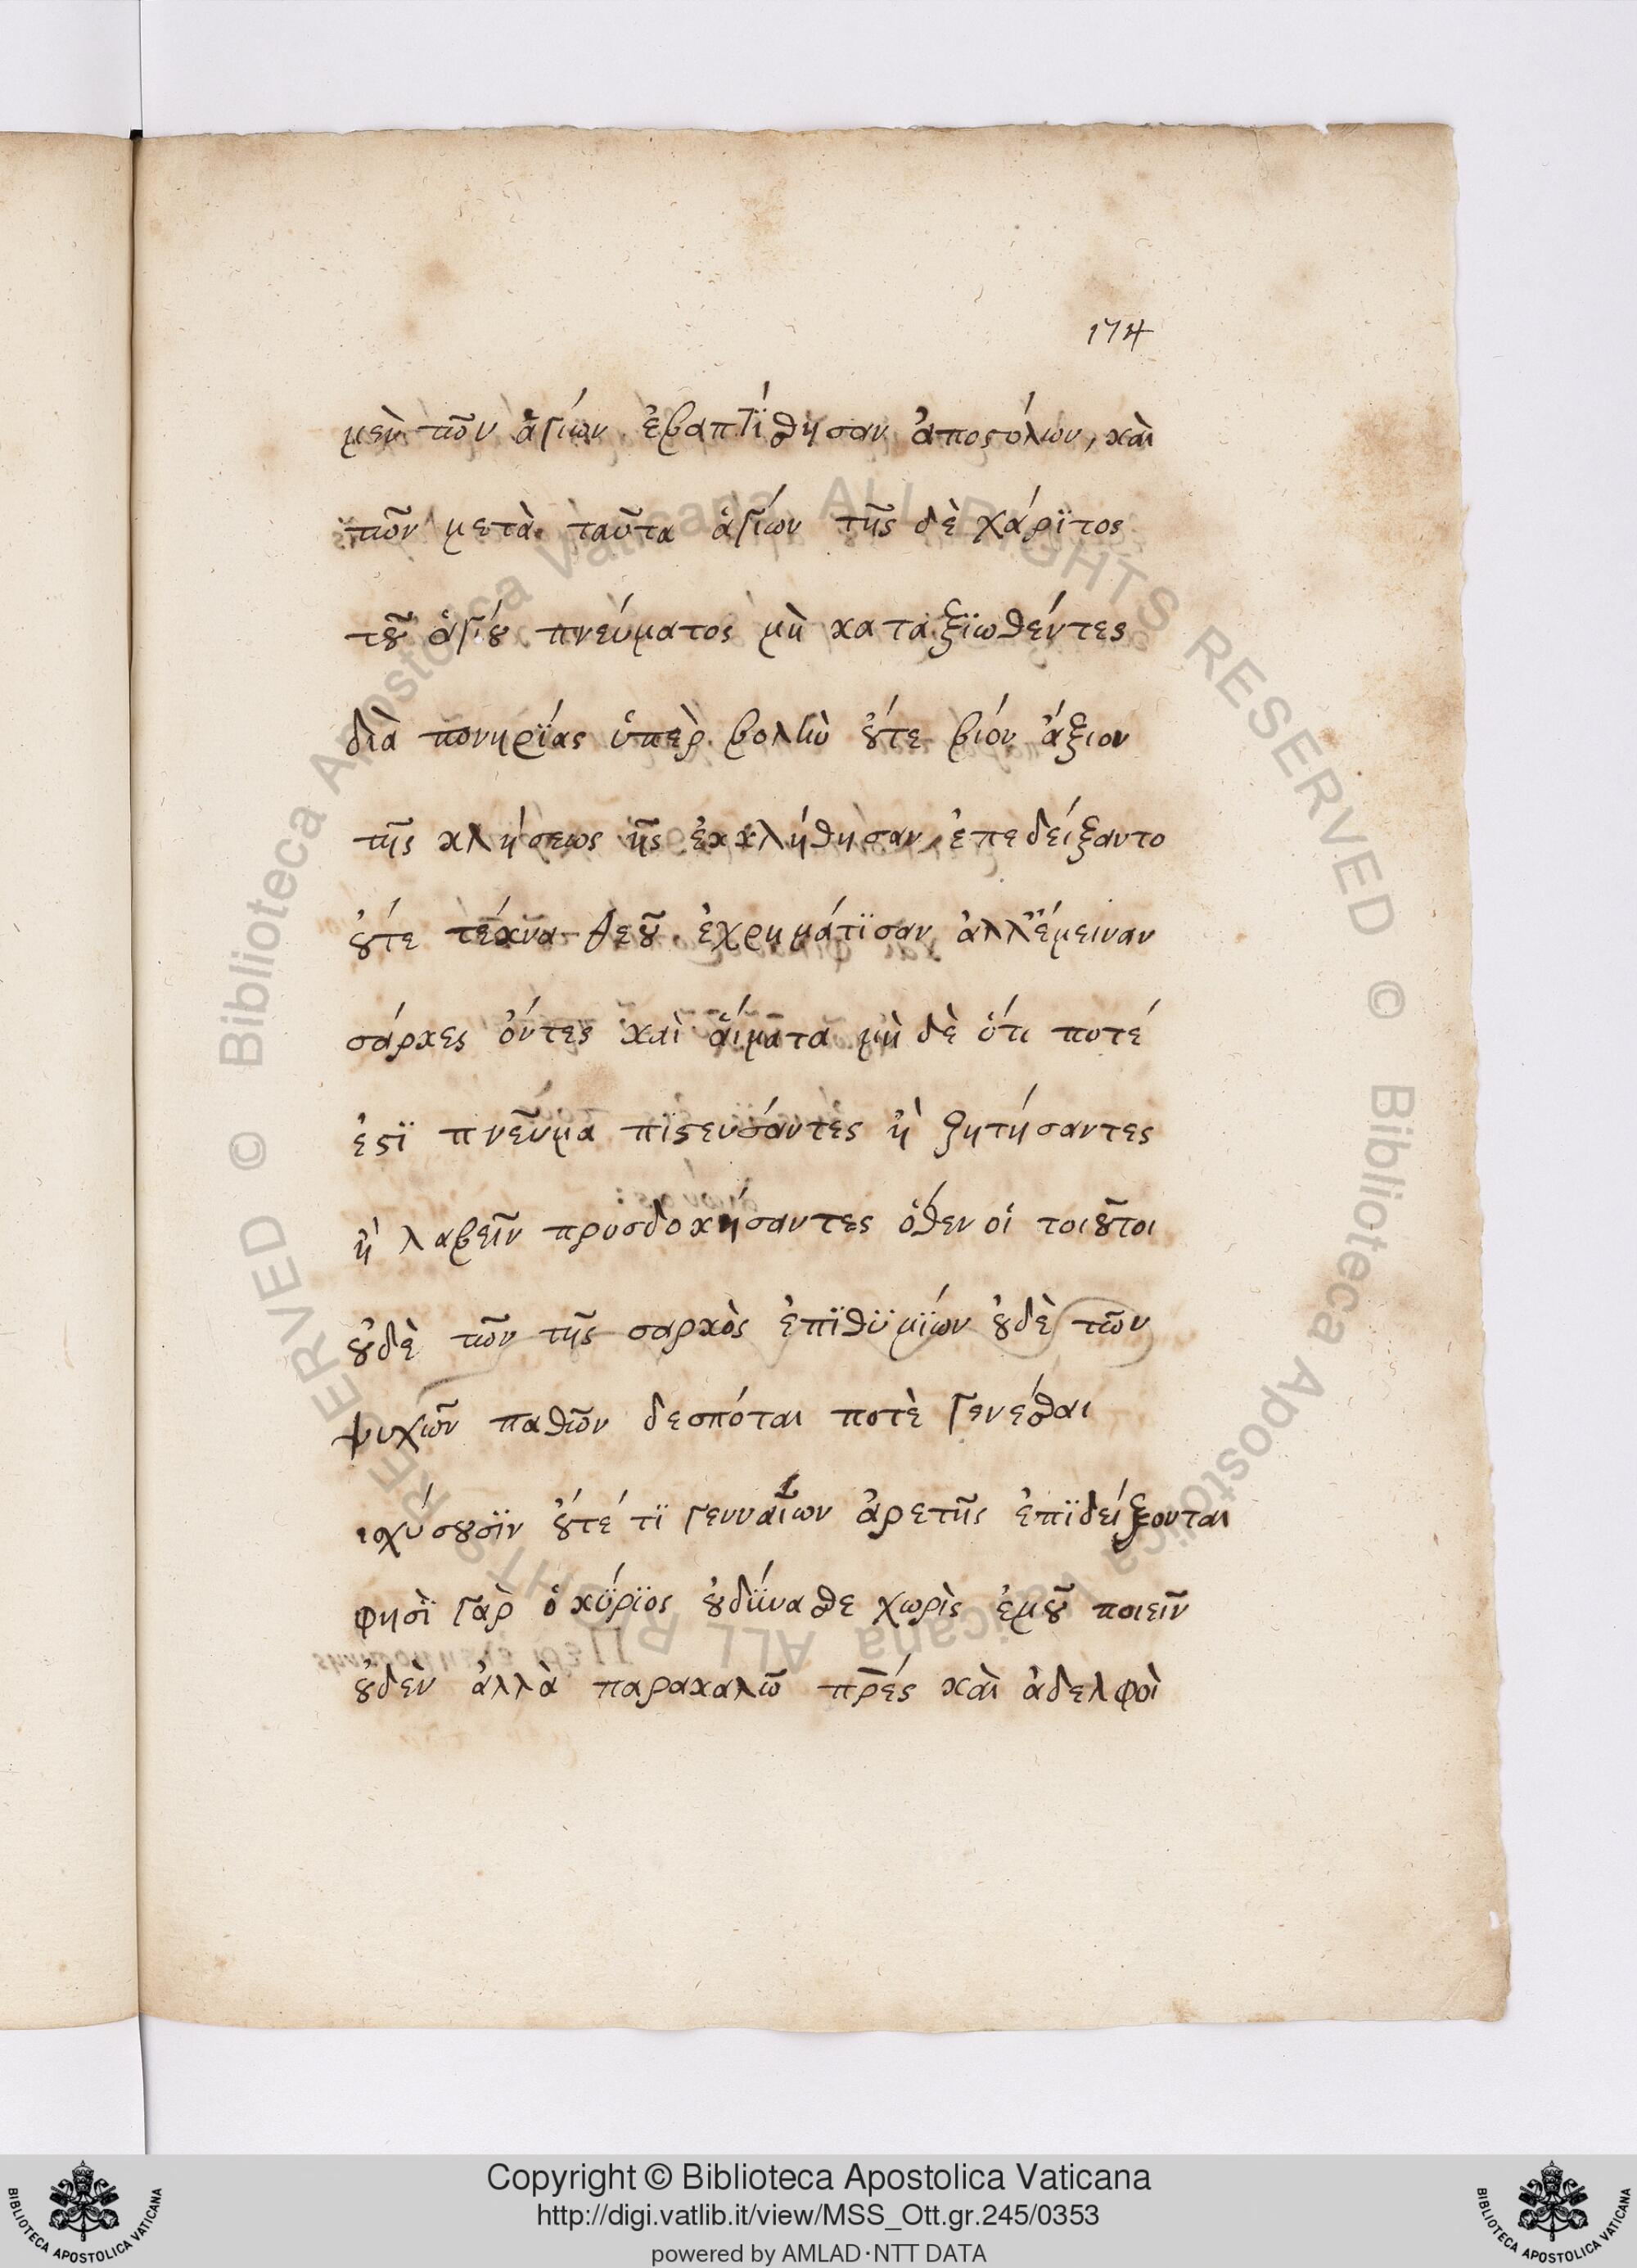 174
μεν τῶν ἁγίων ἐβαπτίσθησαν ἀποστόλων, καὶ
τῶν μετὰ ταῦτα ἁγίων τῆς δὲ χάρϊτος
τοῦ ἁγίου πνεύματος μὴ καταξϊωθέντες
διὰ πονηρΐας ὑπὲρ βολὴν οὔτε βίον ἄξιον
τῆς κλήσεως ἧς ἐκκλήθησαν ἐπεδείξαντο
οὔτε τέκνα θεοῦ ἐχρημάτϊσαν ἀλλ' ἔμειναν
σάρκες ὄντες καὶ αἵματα μὴ δὲ ὅτι ποτέ
ἐστϊ πνεῦμα πϊστευσάντες ἢ ζητήσαντες
ἢ λαβεῖν προσδοκήσαντες ὅθεν οἱ τοιοῦτοι
οὐδὲ τῶν τῆς σαρκὸς ἐπϊθϋμϊών οὐδὲ τῶν
ψυχῶν παθῶν δεσπόται ποτὲ γενέσθαι
ισχύσουσϊν οὔτέ τϊ γενναίων ἀρετῆς ἐπϊδείξονται
φησῒ γὰρ ὁ κΰρϊος οὐ δΰνασθε χωρὶς ἐμοῦ ποιεῖν
οὐδὲν ἀλλὰ παρακαλῶ πρ̅ές καὶ ἀδελφοὶ
Biblioteca Apostolica Vaticana ALL RIGHTS RESERVED ©
Biblioteca Apostolica Vaticana ALL RIGHTS RESERVED ©
Copyright © Biblioteca Apostolica Vaticana
http://digi.vatlib.it/view/MSS_Ott.gr.245/0353
powered by AMLAD·NTT DATA
BIBLIOTECA APOSTOLICA VATICANA
BIBLIOTECA APOSTOLICA VATICANA